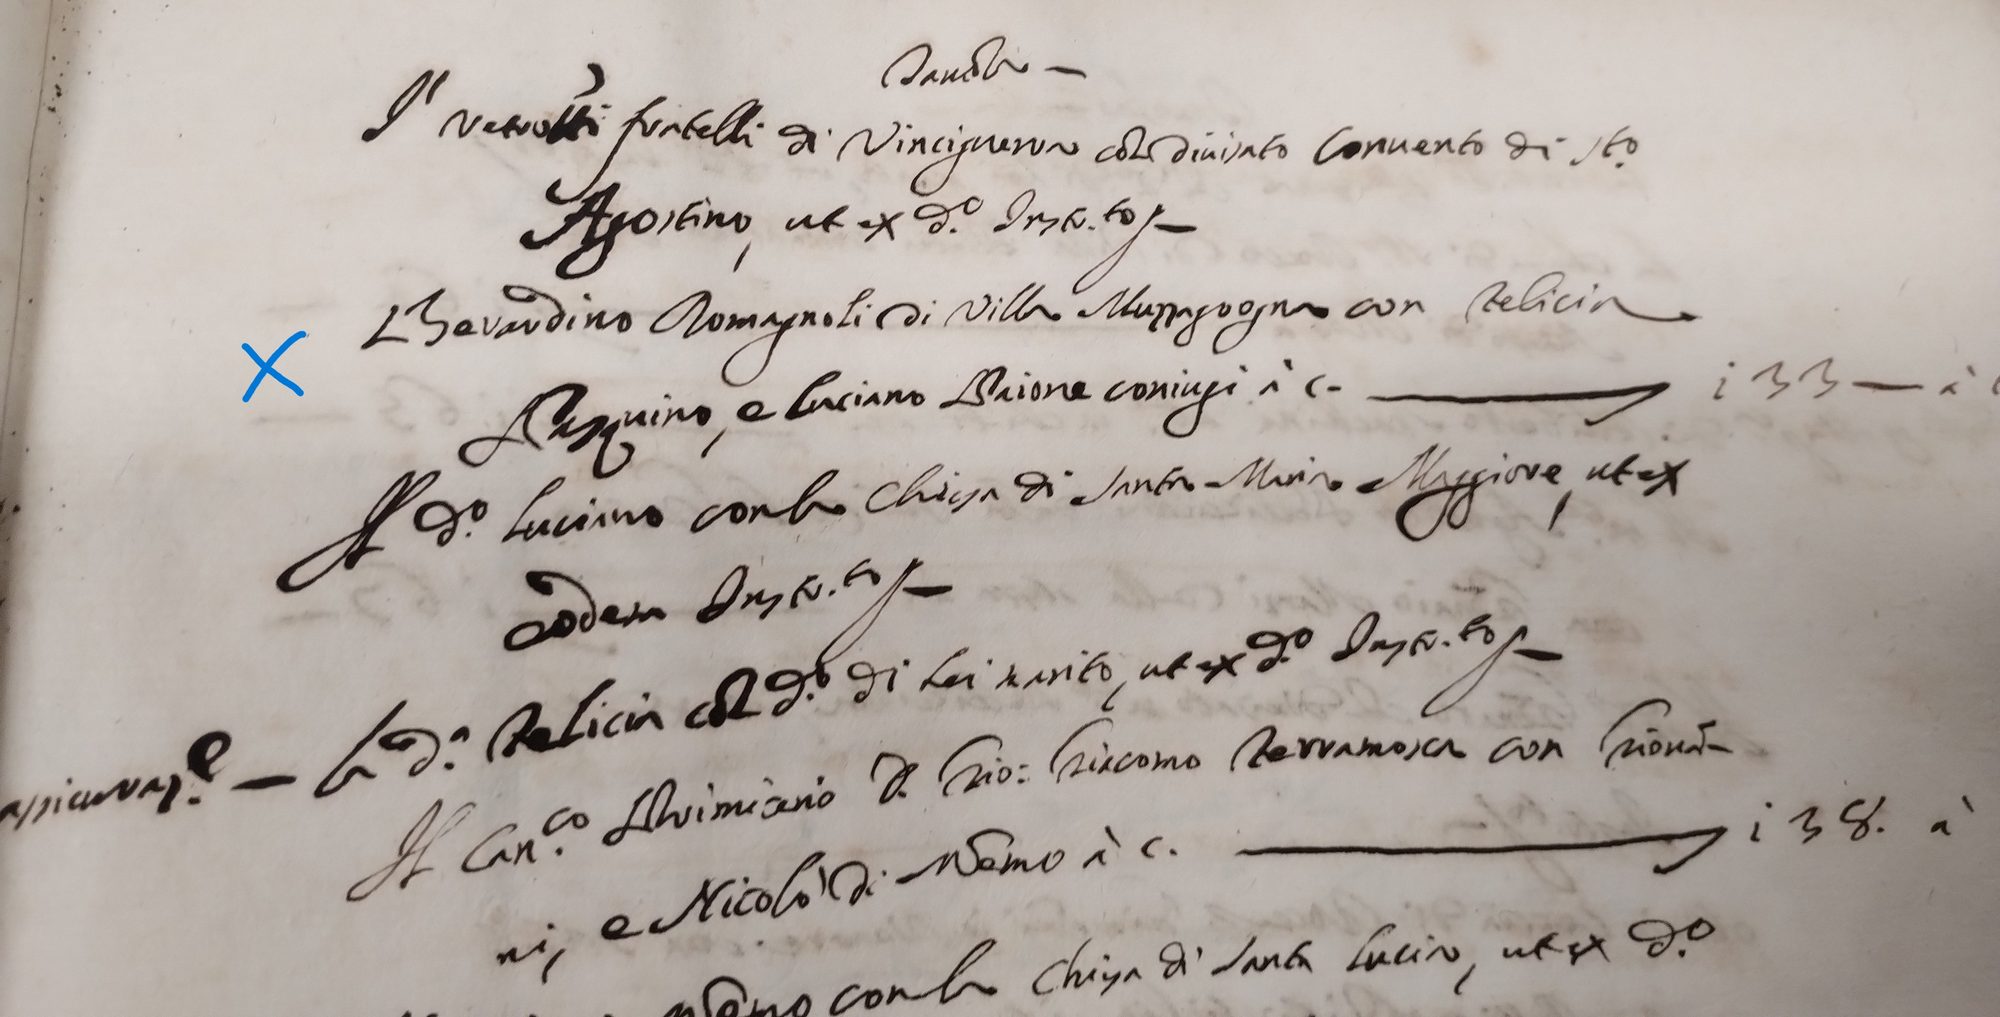 I' retrotti fratelli di Vinciguerra col divisato Convento di Sto.
Agostino, ut ex d.o Instr.to
Berardino Romagnoli di Villa Mozzagrogna con Felicia
Pasquino, e Luciano Baione coniugi à c. 133 — à
Il d.o Luciano con la Chiesa di Santa Maria Maggiore, ut ex
eodem Instr.to
assicuraz.e — La d.a Felicia col d.o di lei marito, ut ex d.o Instr.to
Il Can.co Primicerio D. Gio: Giacomo Terramosca con Giovā-
ni, e Nicolò di Memo à c. 138. à
con la Chiesa di Santa Lucia, ut ex d.o